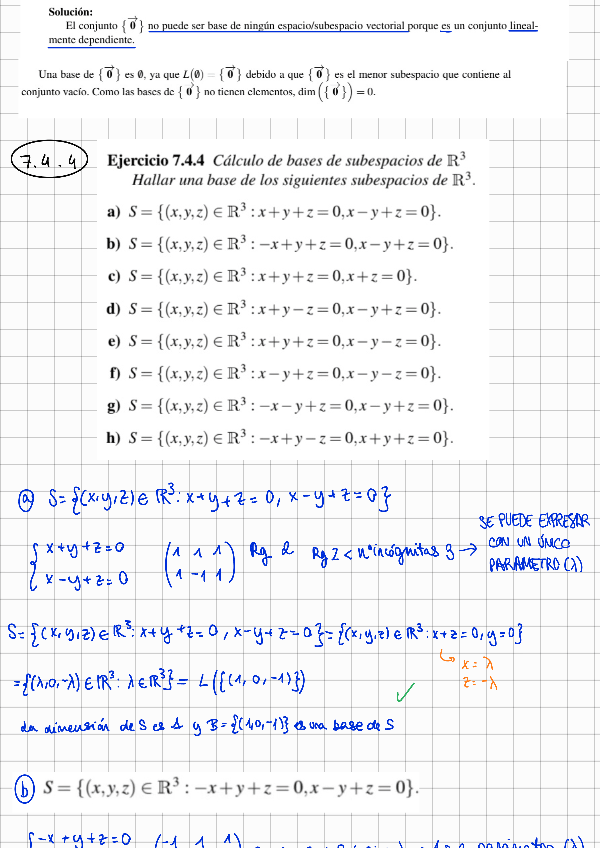 Solución:
El conjunto {0⃗} no puede ser base de ningún espacio/subespacio vectorial porque es un conjunto lineal-
mente dependiente.
Una base de {0⃗} es ∅, ya que L(∅) = {0⃗} debido a que {0⃗} es el menor subespacio que contiene al
conjunto vacío. Como las bases de {0⃗} no tienen elementos, dim({0⃗}) = 0.
7.4.4
Ejercicio 7.4.4 Cálculo de bases de subespacios de ℝ³
Hallar una base de los siguientes subespacios de ℝ³.
a) S = {(x,y,z) ∈ ℝ³ : x+y+z = 0, x−y+z = 0}.
b) S = {(x,y,z) ∈ ℝ³ : −x+y+z = 0, x−y+z = 0}.
c) S = {(x,y,z) ∈ ℝ³ : x+y+z = 0, x+z = 0}.
d) S = {(x,y,z) ∈ ℝ³ : x+y−z = 0, x−y+z = 0}.
e) S = {(x,y,z) ∈ ℝ³ : x+y+z = 0, x−y−z = 0}.
f) S = {(x,y,z) ∈ ℝ³ : x−y+z = 0, x−y−z = 0}.
g) S = {(x,y,z) ∈ ℝ³ : −x−y+z = 0, x−y+z = 0}.
h) S = {(x,y,z) ∈ ℝ³ : −x+y−z = 0, x+y+z = 0}.
a) S = {(x,y,z) ∈ ℝ³ : x+y+z = 0, x−y+z = 0}
SE PUEDE EXPRESAR
CON UN ÚNICO
PARÁMETRO (λ)
x+y+z=0 (1 1 1) Rg 2 Rg 2 < nº incógnitas 3 →
x−y+z=0 (1 −1 1)
S = {(x,y,z) ∈ ℝ³ : x+y+z=0, x−y+z=0} = {(x,y,z) ∈ ℝ³ : x+z=0, y=0}
x = λ
z = −λ
= {(λ,0,−λ) ∈ ℝ³ : λ ∈ ℝ³} = L({(1, 0, −1)})
La dimensión de S es 1 y B = {(1,0,−1)} es una base de S
b) S = {(x,y,z) ∈ ℝ³ : −x+y+z = 0, x−y+z = 0}.
{−x+y+z=0 (−1 1 1)